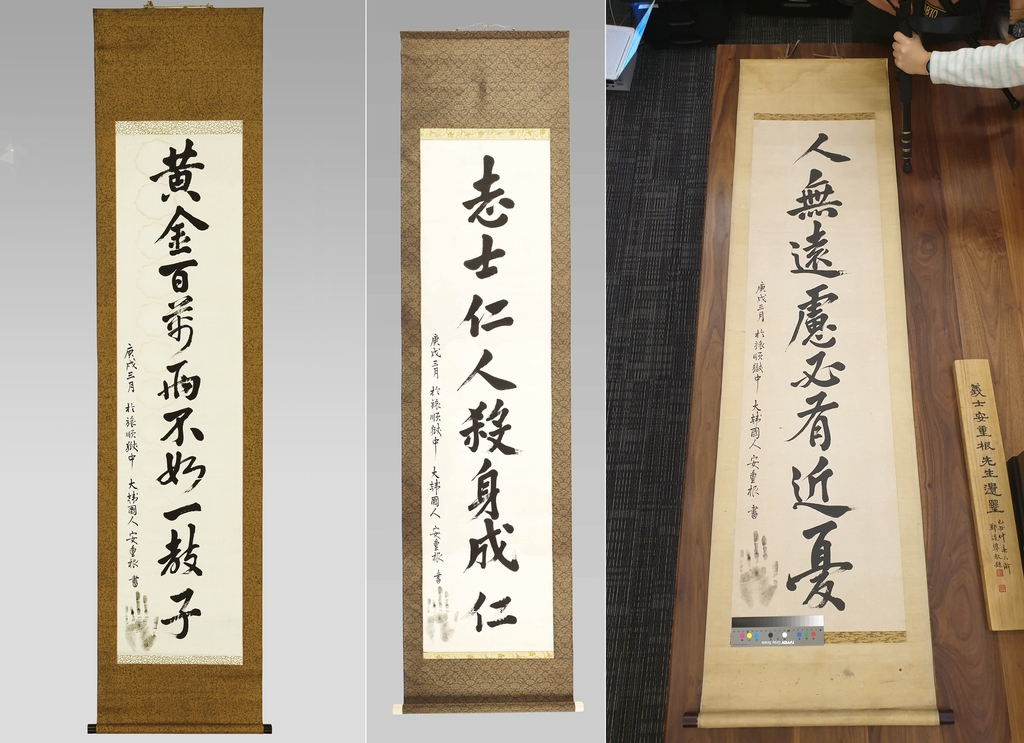 黄金百萬両不如一教子
庚戌三月 於旅順獄中 大韓國人 安重根 書
志士仁人殺身成仁
庚戌三月 於旅順獄中 大韓國人 安重根 書
人無遠慮必有近憂
庚戌三月 於旅順獄中 大韓國人 安重根 書
義士安重根先生遺墨